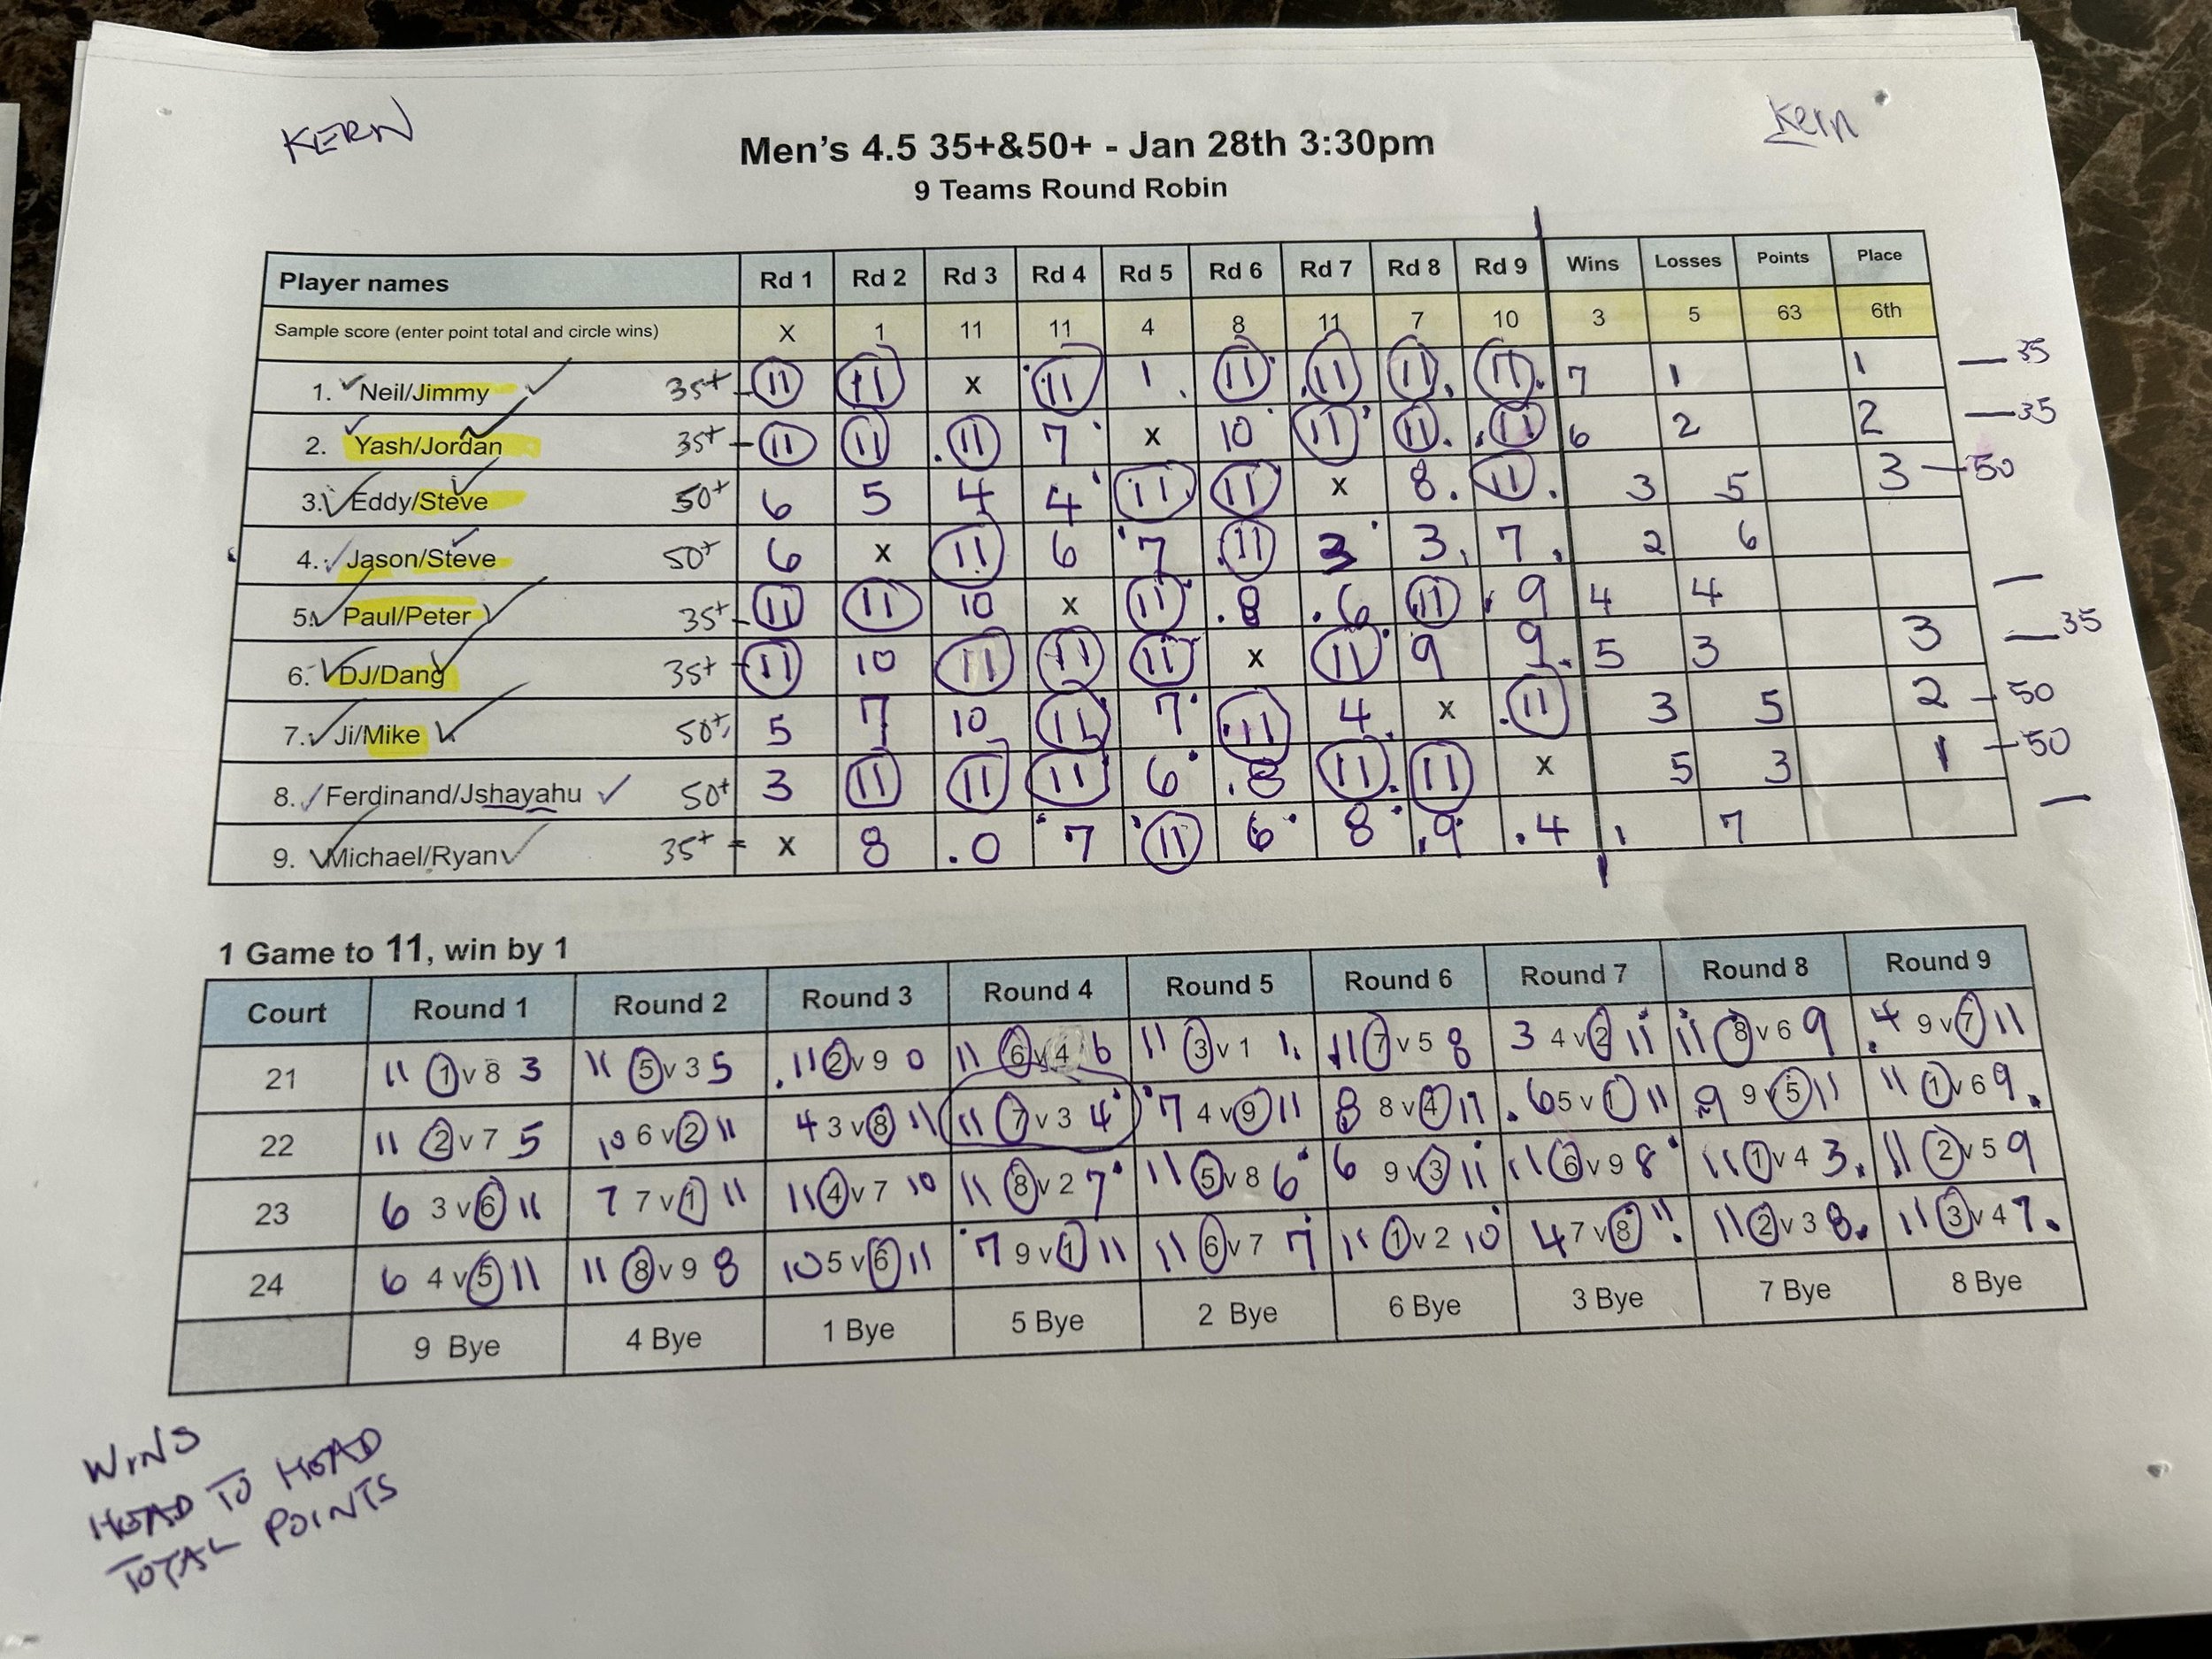 KERN
Kern
Men's 4.5 35+&50+ - Jan 28th 3:30pm
9 Teams Round Robin
Player names Rd 1 Rd 2 Rd 3 Rd 4 Rd 5 Rd 6 Rd 7 Rd 8 Rd 9 Wins Losses Points Place
Sample score (enter point total and circle wins) X 1 11 11 4 8 11 7 10 3 5 63 6th
1. Neil/Jimmy 35+ 11 11 X 11 1 11 11 11 11 7 1 1 35
2. Yash/Jordan 35+ 11 11 11 7 X 10 11 11 11 6 2 2 35
3. Eddy/Steve 50+ 6 5 4 4 11 11 X 8 11 3 5 3 50
4. Jason/Steve 50+ 6 X 11 6 7 11 3 3 7 2 6
5. Paul/Peter 35+ 11 11 10 X 11 8 6 11 9 4 4
6. DJ/Dang 35+ 11 10 11 11 11 X 11 9 9 5 3 3 35
7. Ji/Mike 50+ 5 7 10 11 7 11 4 X 11 3 5 2 50
8. Ferdinand/Jshayahu 50+ 3 11 11 11 6 8 11 11 X 5 3 1 50
9. Michael/Ryan 35+ X 8 0 7 11 6 8 9 4 1 7
1 Game to 11, win by 1
Court Round 1 Round 2 Round 3 Round 4 Round 5 Round 6 Round 7 Round 8 Round 9
21 11 1 v 8 3 11 5 v 3 5 11 2 v 9 0 11 6 v 4 6 11 3 v 1 1 11 7 v 5 8 3 4 v 2 11 11 8 v 6 9 4 9 v 7 11
22 11 2 v 7 5 10 6 v 2 11 4 3 v 8 11 11 7 v 3 4 7 4 v 9 11 8 8 v 4 11 6 5 v 1 11 9 9 v 5 11 11 1 v 6 9
23 6 3 v 6 11 7 7 v 1 11 11 4 v 7 10 11 8 v 2 7 11 5 v 8 6 6 9 v 3 11 11 6 v 9 8 11 1 v 4 3 11 2 v 5 9
24 6 4 v 5 11 11 8 v 9 8 10 5 v 6 11 7 9 v 1 11 11 6 v 7 7 11 1 v 2 10 4 7 v 8 11 11 2 v 3 8 11 3 v 4 7
9 Bye 4 Bye 1 Bye 5 Bye 2 Bye 6 Bye 3 Bye 7 Bye 8 Bye
WINS
HEAD TO HEAD
TOTAL POINTS